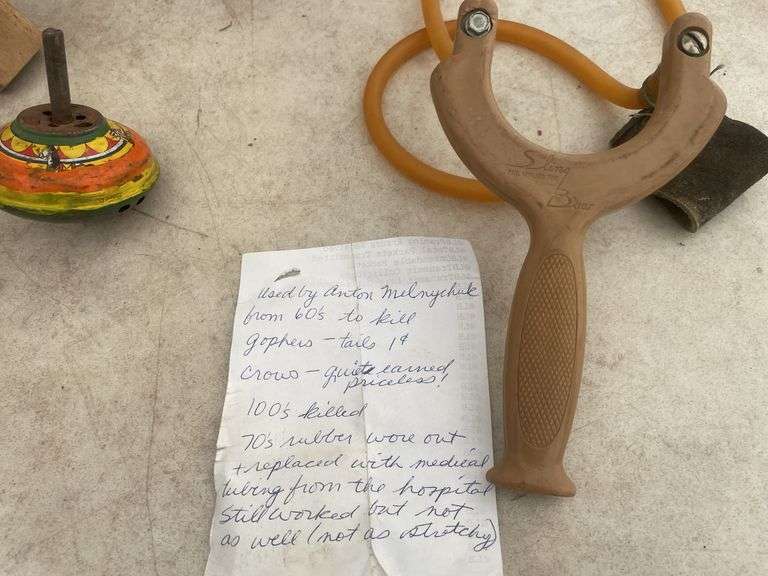 Sling
Bow
Used by Anton Melnychuk
from 60's to kill
gophers - tails 1¢
crows - quiet earned
priceless!
100's killed
70's rubber wore out
+ replaced with medical
tubing from the hospital
Still worked but not
as well (not as stretchy)